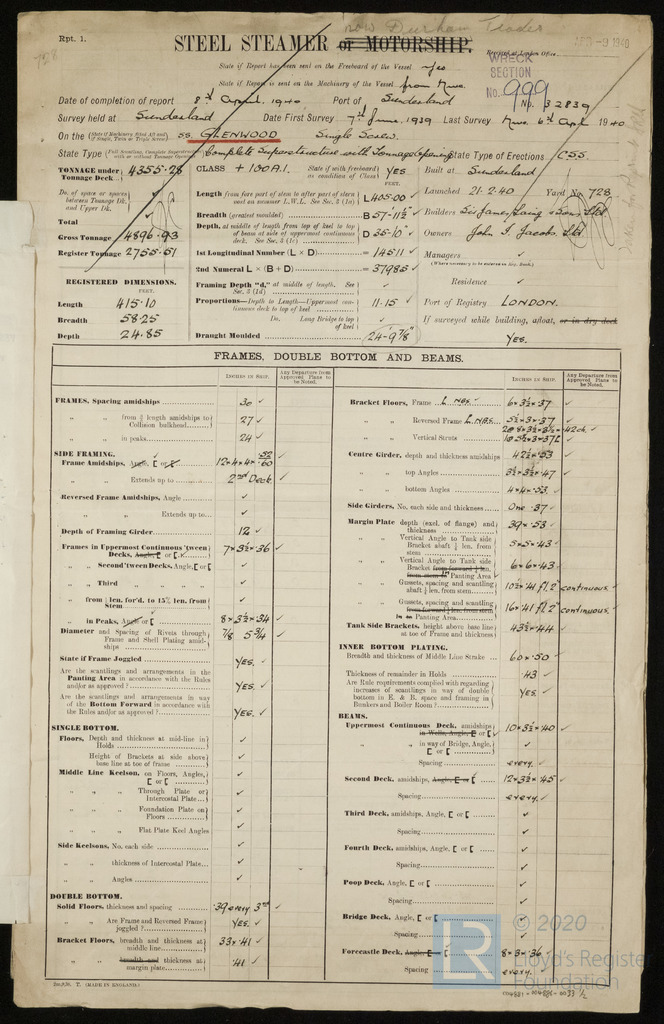 now Durham Trader
Rpt. 1.
STEEL STEAMER or MOTORSHIP.
Received at London Office
APR -9 1940
State if Report has been sent on the Freeboard of the Vessel Yes
WRECK SECTION
State if Report is sent on the Machinery of the Vessel from Nwc.
No. 999
Date of completion of report 8th April, 1940 Port of Sunderland No. 32839
Survey held at Sunderland Date First Survey 7th June, 1939 Last Survey Nwc. 6th Apl 1940
On the (State if Machinery fitted Aft and if Single, Twin or Triple Screw) SS. GLENWOOD Single Screw.
State Type Complete Superstructure with Tonnage Opening State Type of Erections CSS
TONNAGE under Tonnage Deck 4355.28
CLASS + 100A1. State if with freeboard as condition of Class YES
Built at Sunderland
Launched 21.2.40 Yard No. 728
Do. of space or spaces between Tonnage Dk. and Upper Dk.
Length from fore part of stem to after part of stern post on summer L.W.L. See Sec. 3 (1a) L 405.00
Total
Breadth (greatest moulded) B 57-11½
Builders Sir James Laing & Sons Ltd
Gross Tonnage 4896.93
Depth, at middle of length from top of keel to top of beam at side of uppermost continuous deck. See Sec. 3 (1c) D 35-10
Owners John I. Jacobs Ltd
Register Tonnage 2755.51
1st Longitudinal Number (L × D) = 14511
Managers
(Where necessary to be entered in Reg. Book.)
2nd Numeral L × (B + D) = 37985
Residence
REGISTERED DIMENSIONS.
FEET.
Framing Depth "d," at middle of length. See Sec. 3 (1d)
Port of Registry LONDON.
Length 415.10
Proportions—Depth to Length—Uppermost continuous deck to top of keel 11.15
Do. Long Bridge to top of keel
If surveyed while building, afloat, or in dry dock
Breadth 58.25
Yes.
Depth 24.85
Draught Moulded 24-9⅞
FRAMES, DOUBLE BOTTOM AND BEAMS.
INCHES IN SHIP. Any Departure from Approved Plans to be Noted.
FRAMES, Spacing amidships 30
" " from ⅗ length amidships to Collision bulkhead 27
" " in peaks 24
SIDE FRAMING.
Frame Amidships, Angle, [ or
" " Extends up to 2nd Deck
Reversed Frame Amidships, Angle
" " Extends up to
Depth of Framing Girder 12
Frames in Uppermost Continuous 'tween Decks, Angle, [ or [ 7 × 3½ × .36
" " Second 'tween Decks, Angle, [ or [
" " Third " "
" " from ⅕ len. for'd. to 15% len. from Stem
" " in Peaks, Angle or [ 8 × 3½ × .34
Diameter and Spacing of Rivets through Frame and Shell Plating amidships 7/8 5¾
State if Frame Joggled YES.
Are the scantlings and arrangements in the Panting Area in accordance with the Rules and/or as approved? YES.
Are the scantlings and arrangements in way of the Bottom Forward in accordance with the Rules and/or as approved? YES.
SINGLE BOTTOM.
Floors, Depth and thickness at mid-line in Holds
Height of Brackets at side above base line at toe of frame
Middle Line Keelson, on Floors, Angles, [ or [
" " Through Plate or Intercostal Plate
" " Foundation Plate on Floors
" " Flat Plate Keel Angles
Side Keelsons, No. each side
" " thickness of Intercostal Plate
" " Angles
DOUBLE BOTTOM.
Solid Floors, thickness and spacing .39 every 3rd
" " Are Frame and Reversed Frame joggled? YES.
Bracket Floors, breadth and thickness at middle line 33 × .41
" " breadth and thickness at margin plate .41
INCHES IN SHIP. Any Departure from Approved Plans to be Noted.
Bracket Floors, Frame 6 × 3½ × .37
" " Reversed Frame 5½ × 3 × .37
" " Vertical Struts
Centre Girder, depth and thickness amidships 42½ × .53
" " top Angles 3½ × 3½ × .47
" " bottom Angles 4 × 4 × .53
Side Girders, No. each side and thickness One .37
Margin Plate depth (excl. of flange) and thickness 39 × .53
" " Vertical Angle to Tank side Bracket abaft ¼ len. from stem 5 × 5 × .43
" " Vertical Angle to Tank side Bracket from forward ¼ len. from stem to Panting Area 6 × 6 × .43
" " Gussets, spacing and scantling abaft ¼ len. from stem 10½ × .41 fl. 2" continuous.
" " Gussets, spacing and scantling from forward ¼ len. to in Panting Area 16 × .41 fl. 2" continuous.
Tank Side Brackets, height above base line at toe of Frame and thickness 43½ × .44
INNER BOTTOM PLATING.
Breadth and thickness of Middle Line Strake 60 × .50
Thickness of remainder in Holds .43
Are Rule requirements complied with regarding increases of scantlings in way of double bottom in E. & B. space and framing in Bunkers and Boiler Room? YES.
BEAMS.
Uppermost Continuous Deck, amidships in Wells, Angle, [ or [ 10 × 3½ × .40
" " in way of Bridge, Angle, [ or [
Spacing every.
Second Deck, amidships, Angle, [ or [ 12 × 3½ × .45
Spacing every.
Third Deck, amidships, Angle, [ or [
Spacing
Fourth Deck, amidships, Angle, [ or [
Spacing
Poop Deck, Angle, [ or [
Spacing
Bridge Deck, Angle, [ or [
Spacing
Forecastle Deck, Angle, [ or [ 8 × 3 × .36
Spacing every.
(MADE IN ENGLAND)
LR © 2020
Lloyd's Register
Foundation